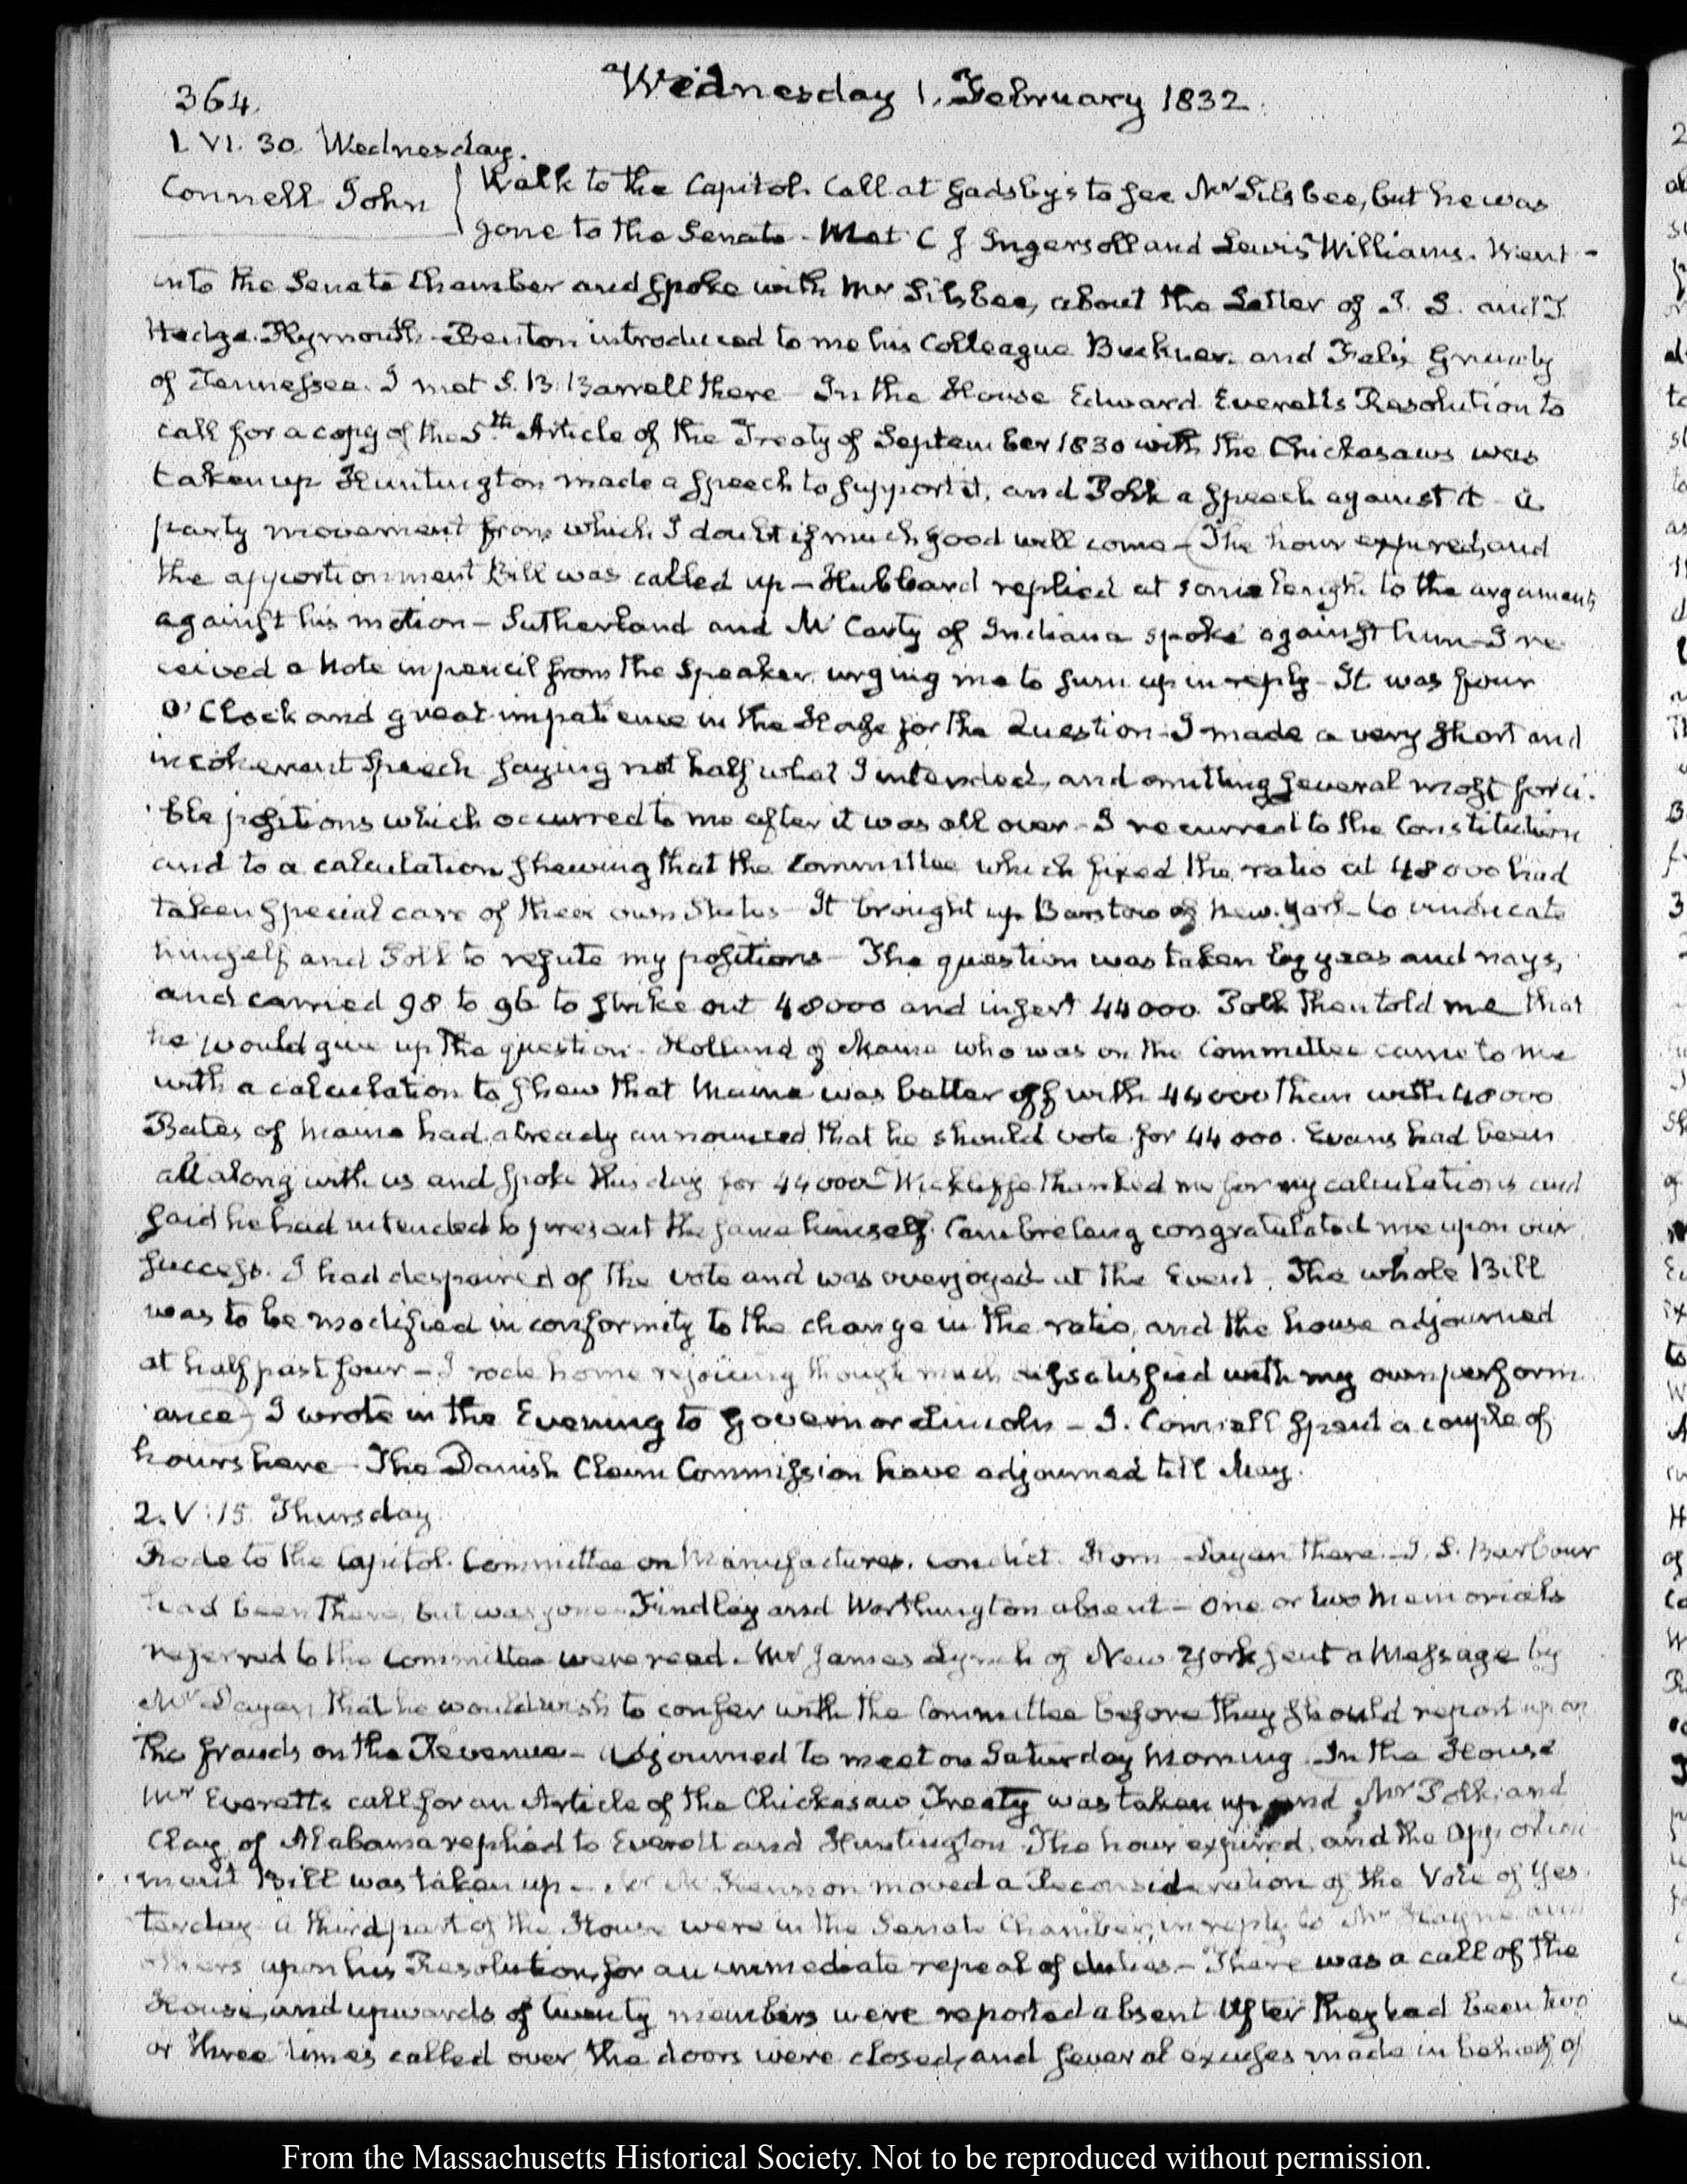 364.
Wednesday 1. February 1832.
1. VI. 30. Wednesday.
Connell John
Walk to the Capitol. Call at Gadsby's to see Mr Silsbee, but he was
gone to the Senate. Met C J Ingersoll and Lewis Williams. Went
into the Senate Chamber and spoke with Mr Silsbee, about the Letter of I. L. and T.
Hedge. Plymouth. Benton introduced to me his Colleague Buckner. and Felix Grundy
of Tennessee. I met S. B. Barrell there— In the House Edward Everett's Resolution to
call for a copy of the 5th Article of the Treaty of September 1830 with the Chickasaws was
taken up Huntington made a speech to support it, and Polk a speech against it— a
party movement from which I doubt if much good will come— The hour expired, and
the apportionment Bill was called up— Hubbard replied at some length to the arguments
against his motion— Sutherland and McCarty of Indiana spoke against him— I re
ceived a Note in pencil from the Speaker urging me to sum up in reply— It was four
O'Clock and great impatience in the House for the Question— I made a very short and
incoherent speech saying not half what I intended, and omitting several most forci-
ble positions which occurred to me after it was all over— I recurred to the Constitution
and to a calculation shewing that the Committee which fixed the ratio at 48000 had
taken special care of their own States— It brought up Barstow of New-York to vindicate
himself, and Polk to refute my positions— The question was taken by yeas and nays,
and carried 98 to 96 to strike out 48000 and insert 44000. Polk then told me that
he would give up the question. Holland of Maine who was on the Committee came to me
with a calculation to shew that Maine was better off with 44000 than with 48000
Bates of Maine had already announced that he should vote for 44000. Evans had been
all along with us and spoke this day for 44000— Wickliffe thanked me for my calculations and
said he had intended to present the same himself. Cambreleng congratulated me upon our
success. I had despaired of the vote and was overjoyed at the Event. The whole Bill
was to be modified in conformity to the change in the ratio, and the house adjourned
at half past four— I rode home rejoicing though much dissatisfied with my own perform
ance— I wrote in the Evening to Governor Lincoln— J. Connell spent a couple of
hours here— The Danish Claim Commission have adjourned till May.
2. V: 15. Thursday.
Rode to the Capitol. Committee on Manufactures. Condict. Horn Dayan there.— J. S. Barbour
had been there, but was gone— Findlay and Worthington absent— One or two Memorials
referred to the Committee were read. Mr James Lynch of New York sent a Message by
Mr Dayan that he would wish to confer with the Committee before they should report upon
the frauds on the Revenue— Adjourned to meet on Saturday Morning. In the House
Mr Everett's call for an Article of the Chickasaw Treaty was taken up and Mr Polk, and
Clay of Alabama replied to Everett and Huntington. The hour expired, and the Apportion
ment Bill was taken up— moved a Reconsideration of the Vote of Yes
terday— A third part of the House were in the Senate Chamber, in reply to Mr Hayne and
others upon his Resolution for an immediate repeal of duties.— There was a call of the
House, and upwards of twenty members were reported absent. After they had been two
or three times called over, the doors were closed, and several excuses made in behalf of
From the Massachusetts Historical Society. Not to be reproduced without permission.